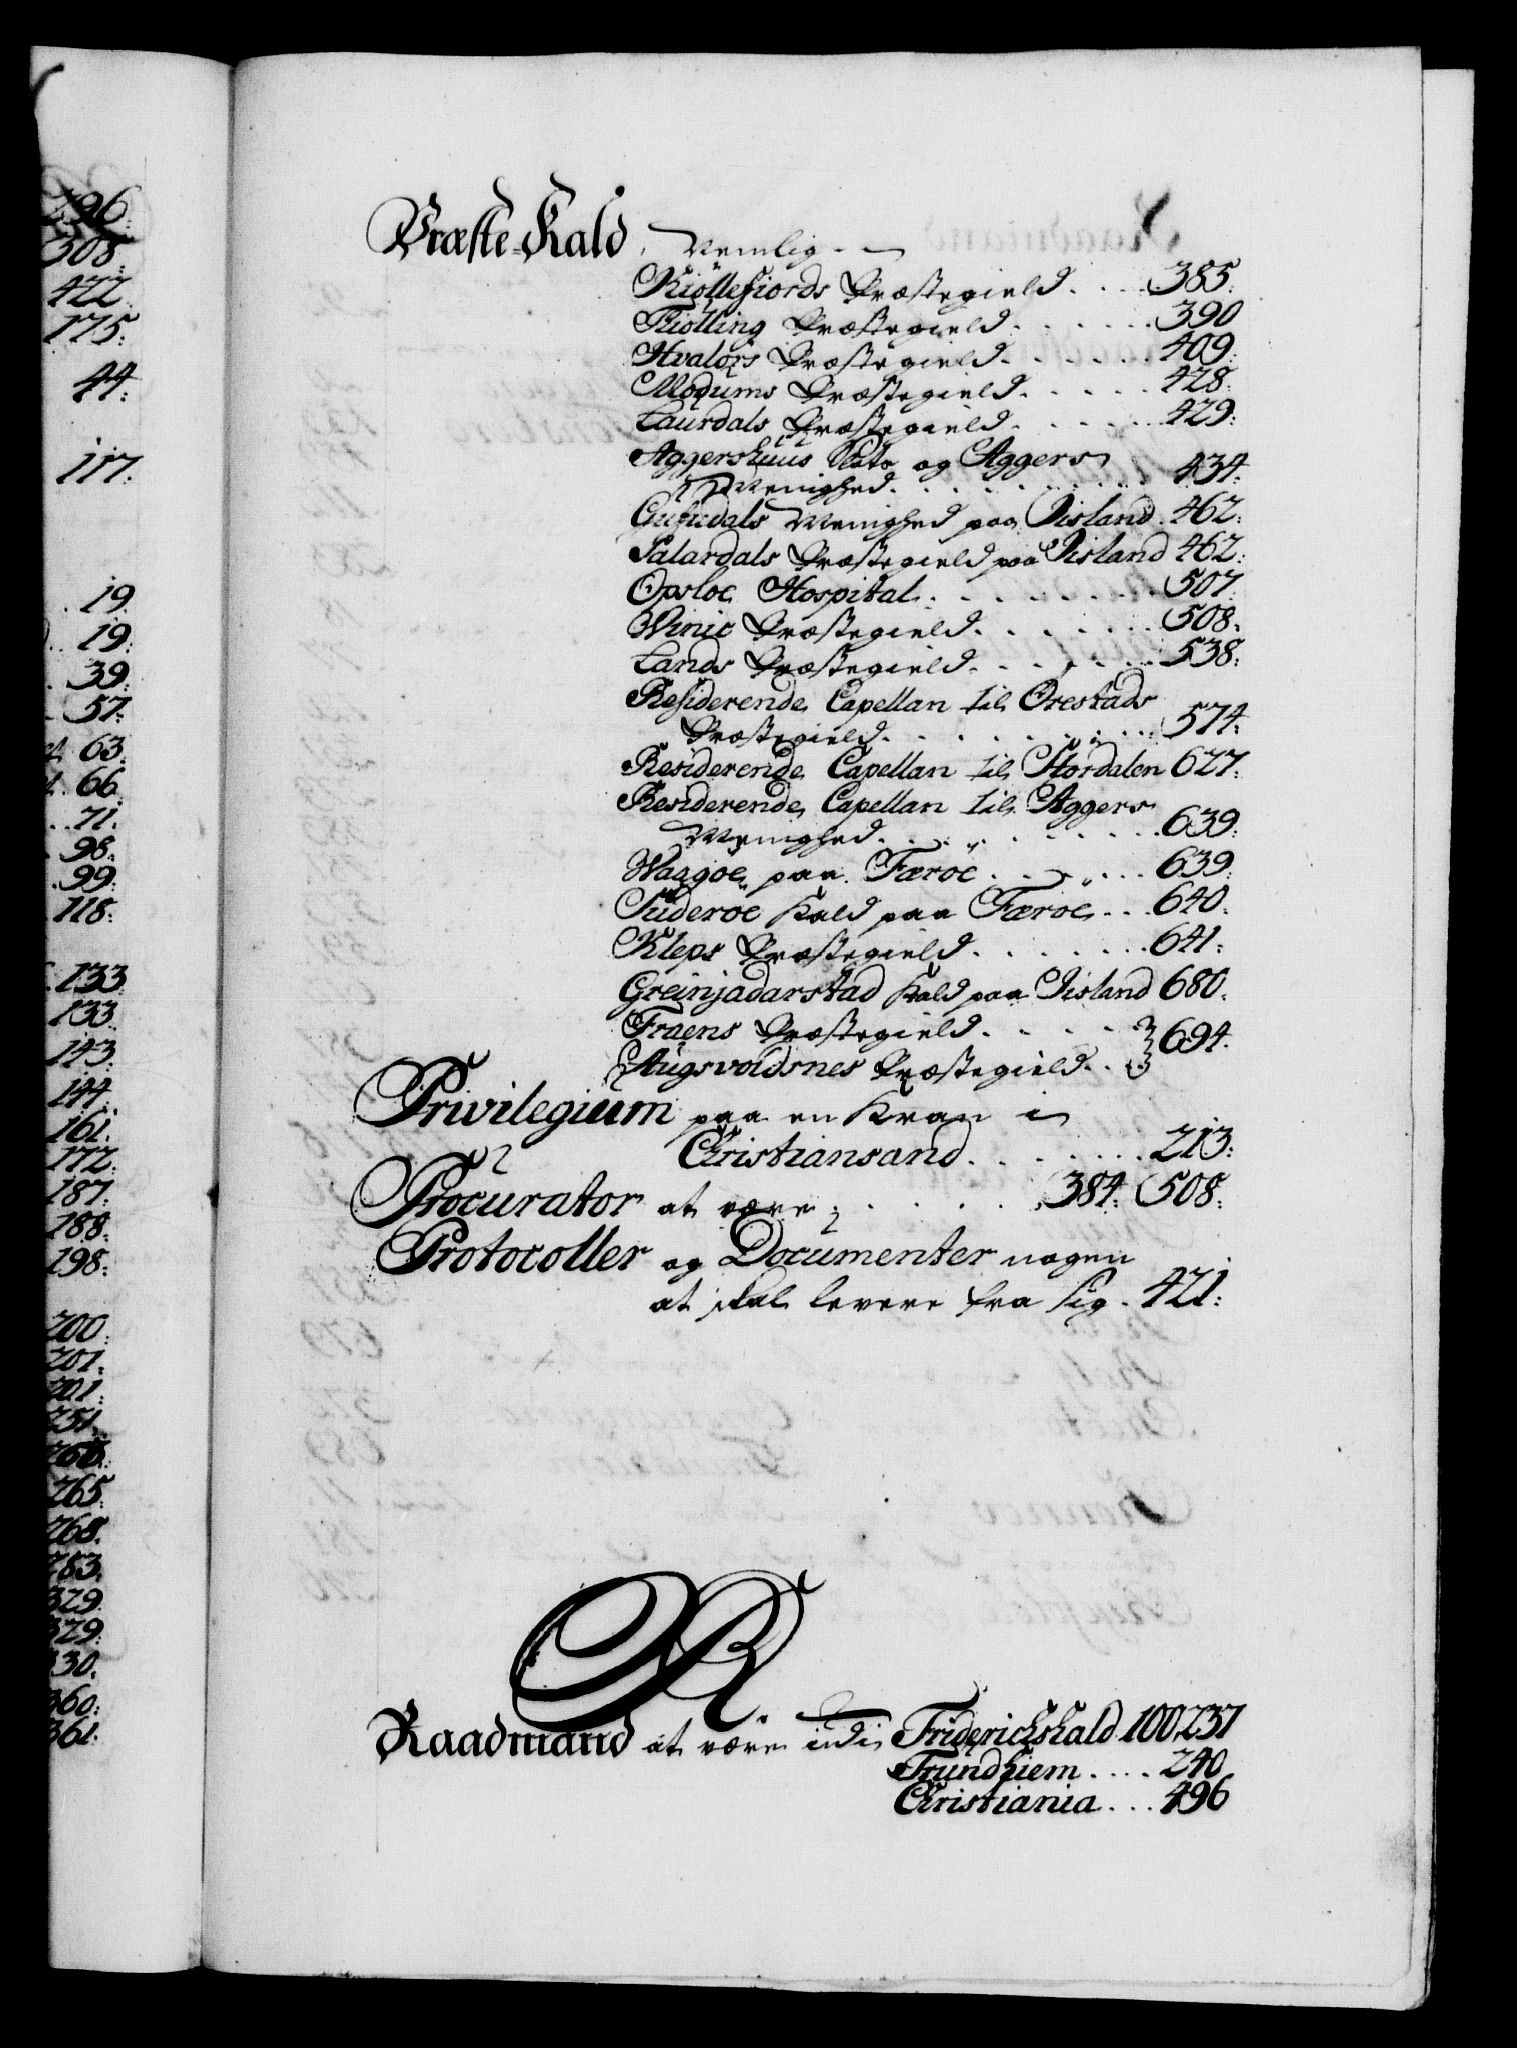 Præste-Kald, Nemlig.
Kiöllefiords Præstegield . . . . 385.
Tiölling Præstegield . . . . . . 390
Hvalörs Præstegield . . . . . 409.
Modums Præstegield . . . . . 428.
Laurdals Præstegield . . . . . . 429:
Aggershuus Slots og Aggers
Menighed . . . . . . . . . 434:
Gufudals Menighed paa Iisland . 462:
Salardals Præstegield paa Iisland 462:
Opsloe Hospital . . . . . . . . 507.
Winie Præstegield . . . . . . . 508.
Lands Præstegield . . . . . . . 538:
Residerende Capellan til Örestads
Præstegield . . . . . . . . . . 574:
Residerende Capellan til Stördalen 627:
Residerende Capellan til Aggers
Menighed . . . . . . . . . . 639:
Waagöe paa Færöe . . . . . . 639:
Süderöe Kald paa Færöe . . . 640.
Kleps Præstegield . . . . . . . 641:
Greinjadarstad Kald paa Iisland 680.
Fraens Præstegield . . . . .
Augsvoldsnes Præstegield . . 694.
Privilegium paa en Kran i
Christiansand . . . . . . . . 213:
Procurator at være . . . . . . 384: 508:
Protocoller og Documenter nogen
at skal levere fra sig . 421:
R.
Raadmand at være udi Friderichshald 100,237
Trundhiem . . . . 240
Christiania . . . 496
196.
308.
422
175.
44:
117:
. 19.
. . 19:
. 39:
. 57:
63.
66
. . 71.
. 98:
. 99:
118:
. 133
133.
143.
144.
161.
172.
187.
188:
198:
200.
201.
201.
251.
260.
265.
268.
283.
329.
329.
330.
360:
361.